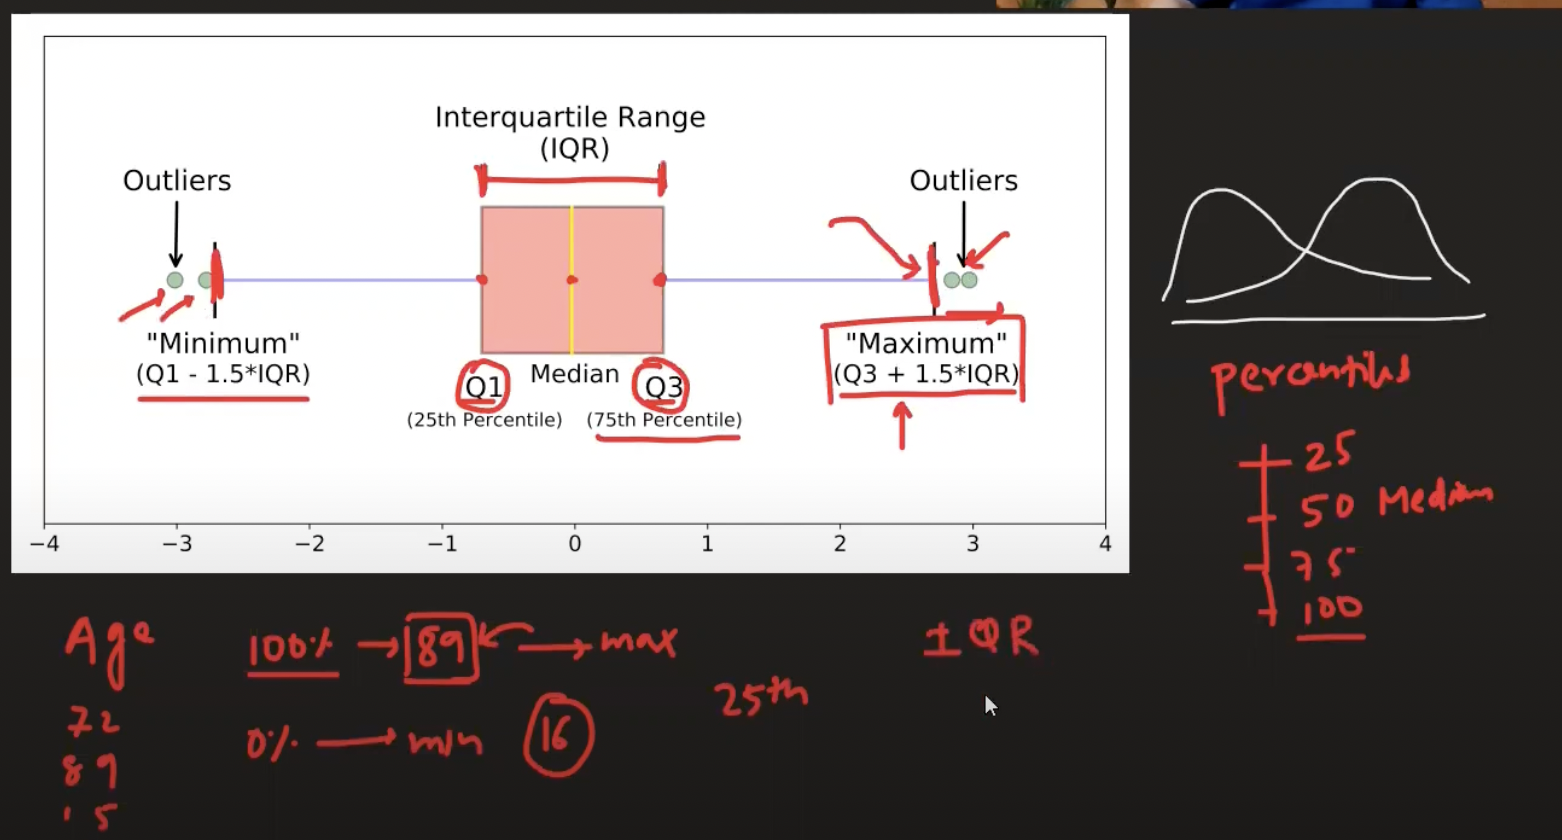 Interquartile Range
(IQR)
Outliers
Outliers
"Minimum"
(Q1 - 1.5*IQR)
"Maximum"
(Q3 + 1.5*IQR)
Q1
Median
Q3
(25th Percentile)
(75th Percentile)
−4 −3 −2 −1 0 1 2 3 4
percentiles
25
50 Median
75
100
Age
72
89
15
100% → 89 → max
0% → min 16
25th
IQR